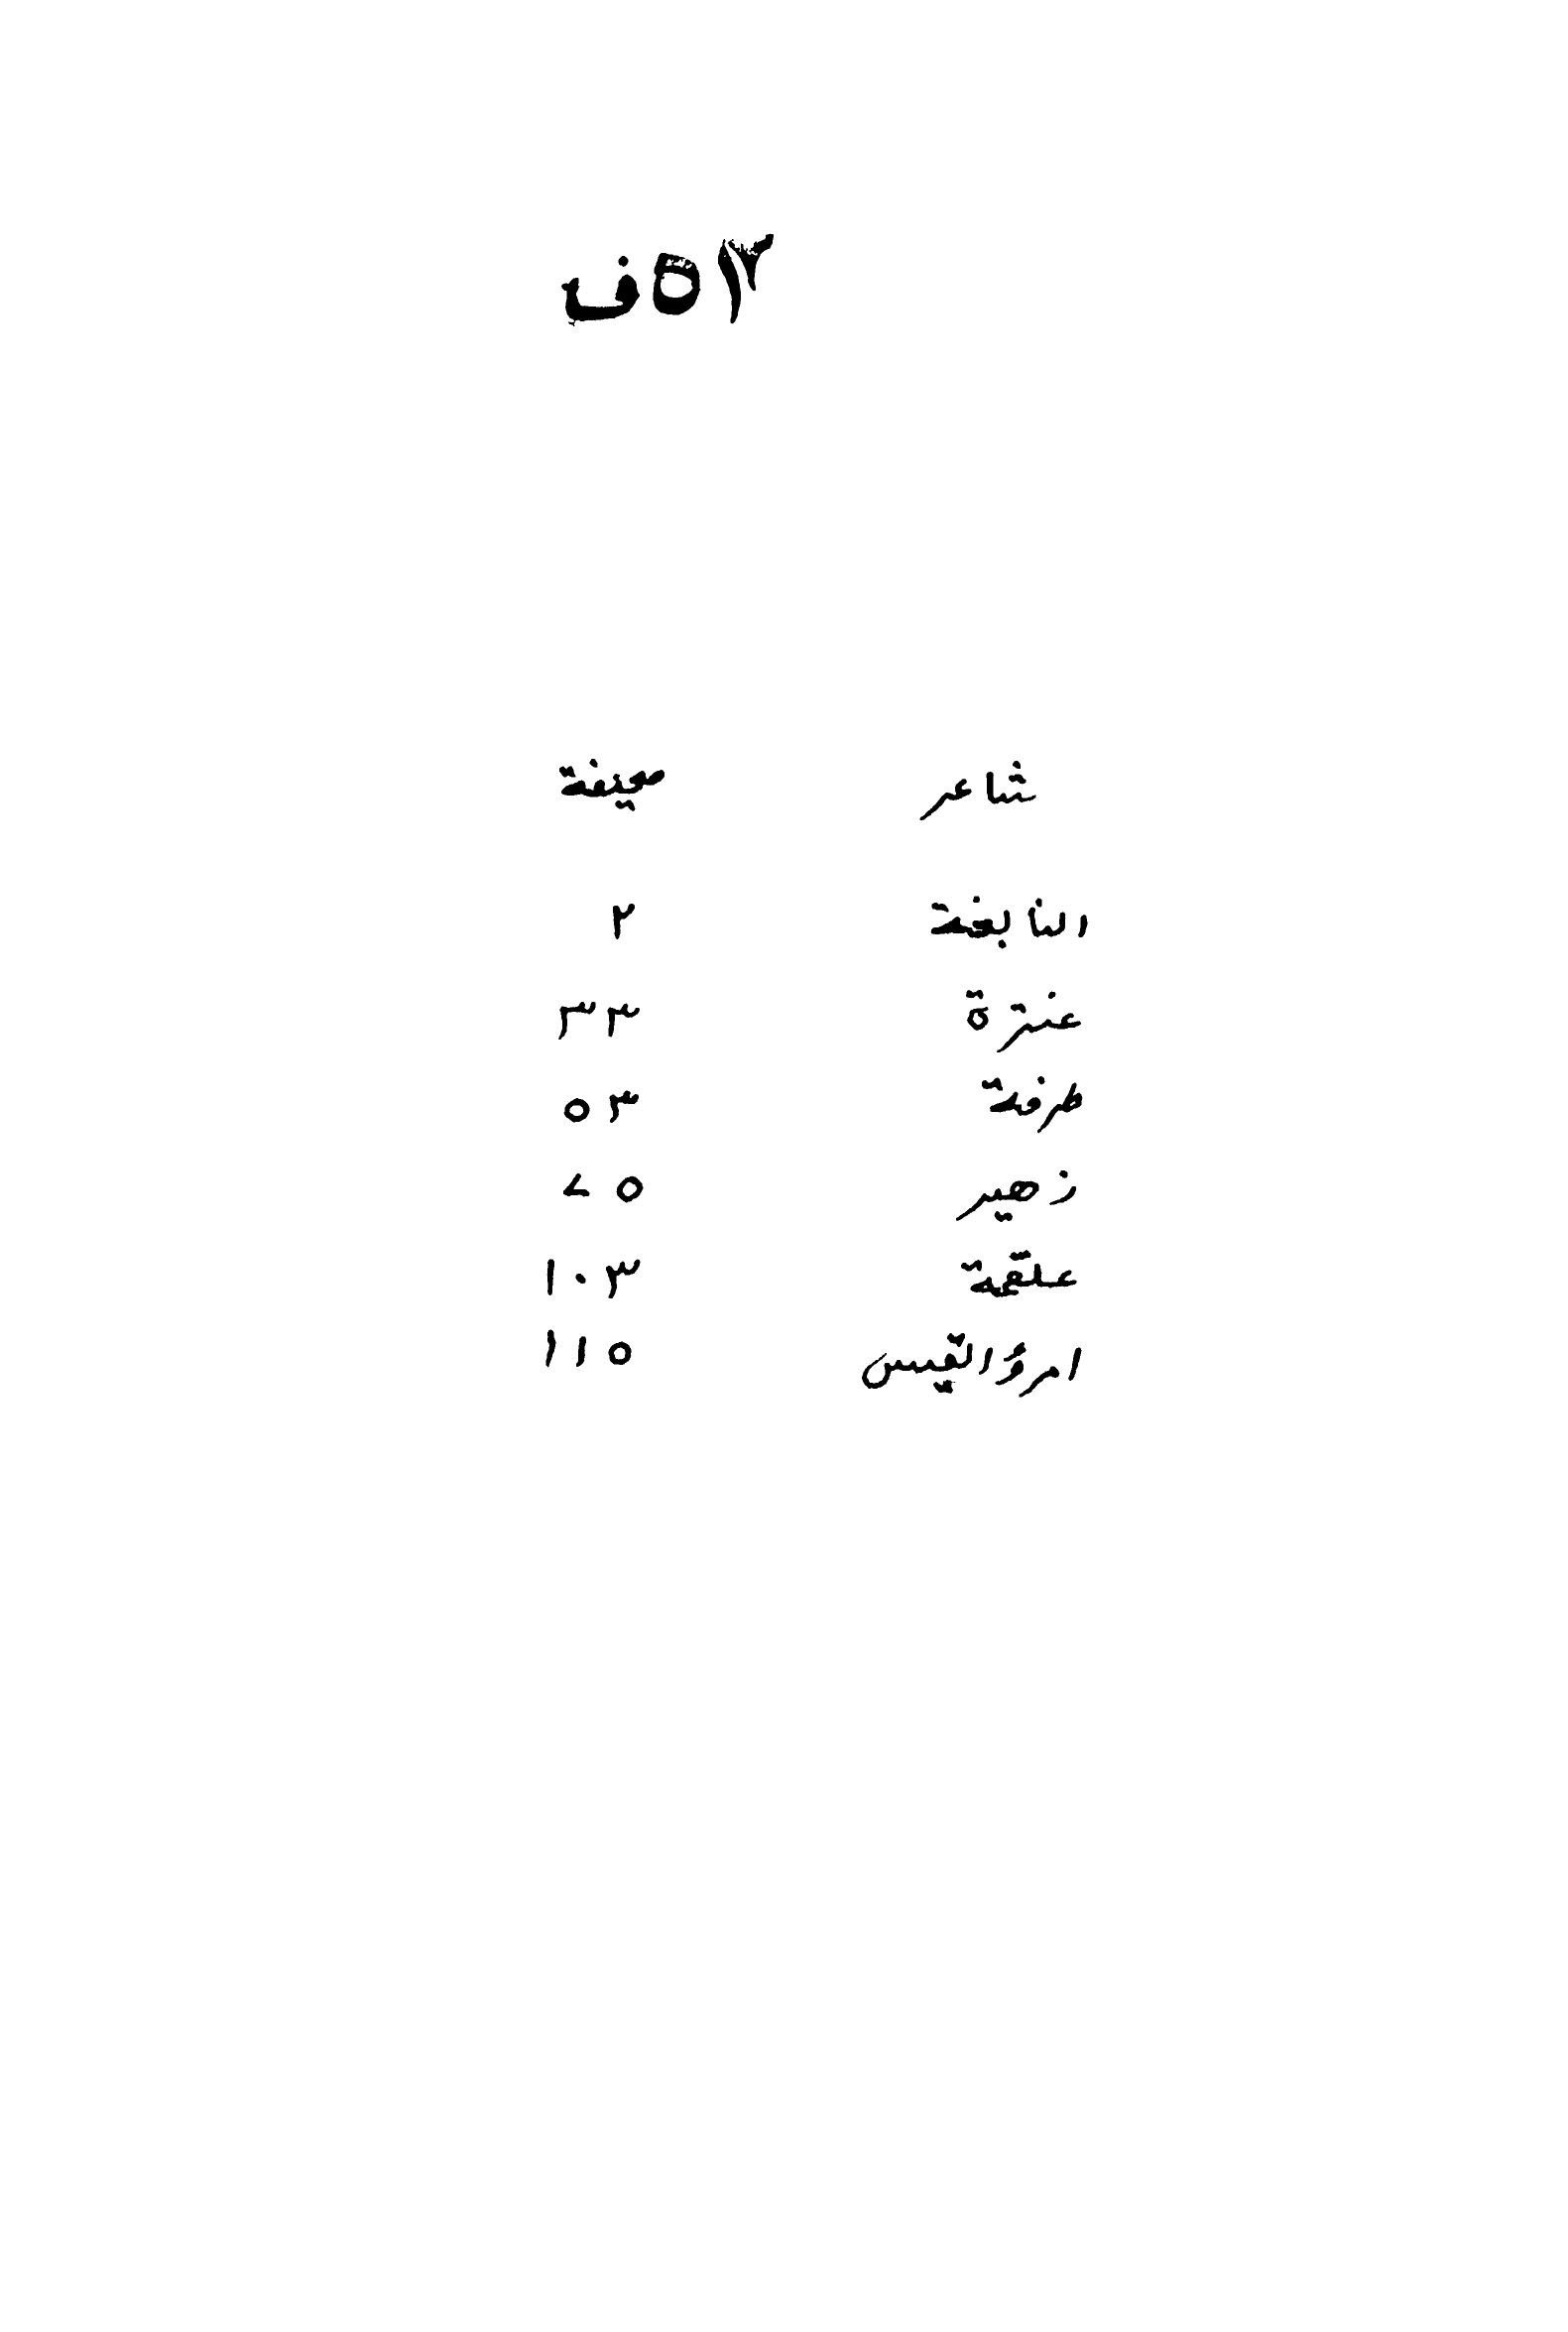 ٥١٢ف
شاعر صحيفة
النابغة ٢
عنترة ٣٣
طرفة ٥٣
زهير ٧٥
علقمة ١٠٣
امرؤ القيس ١١٥